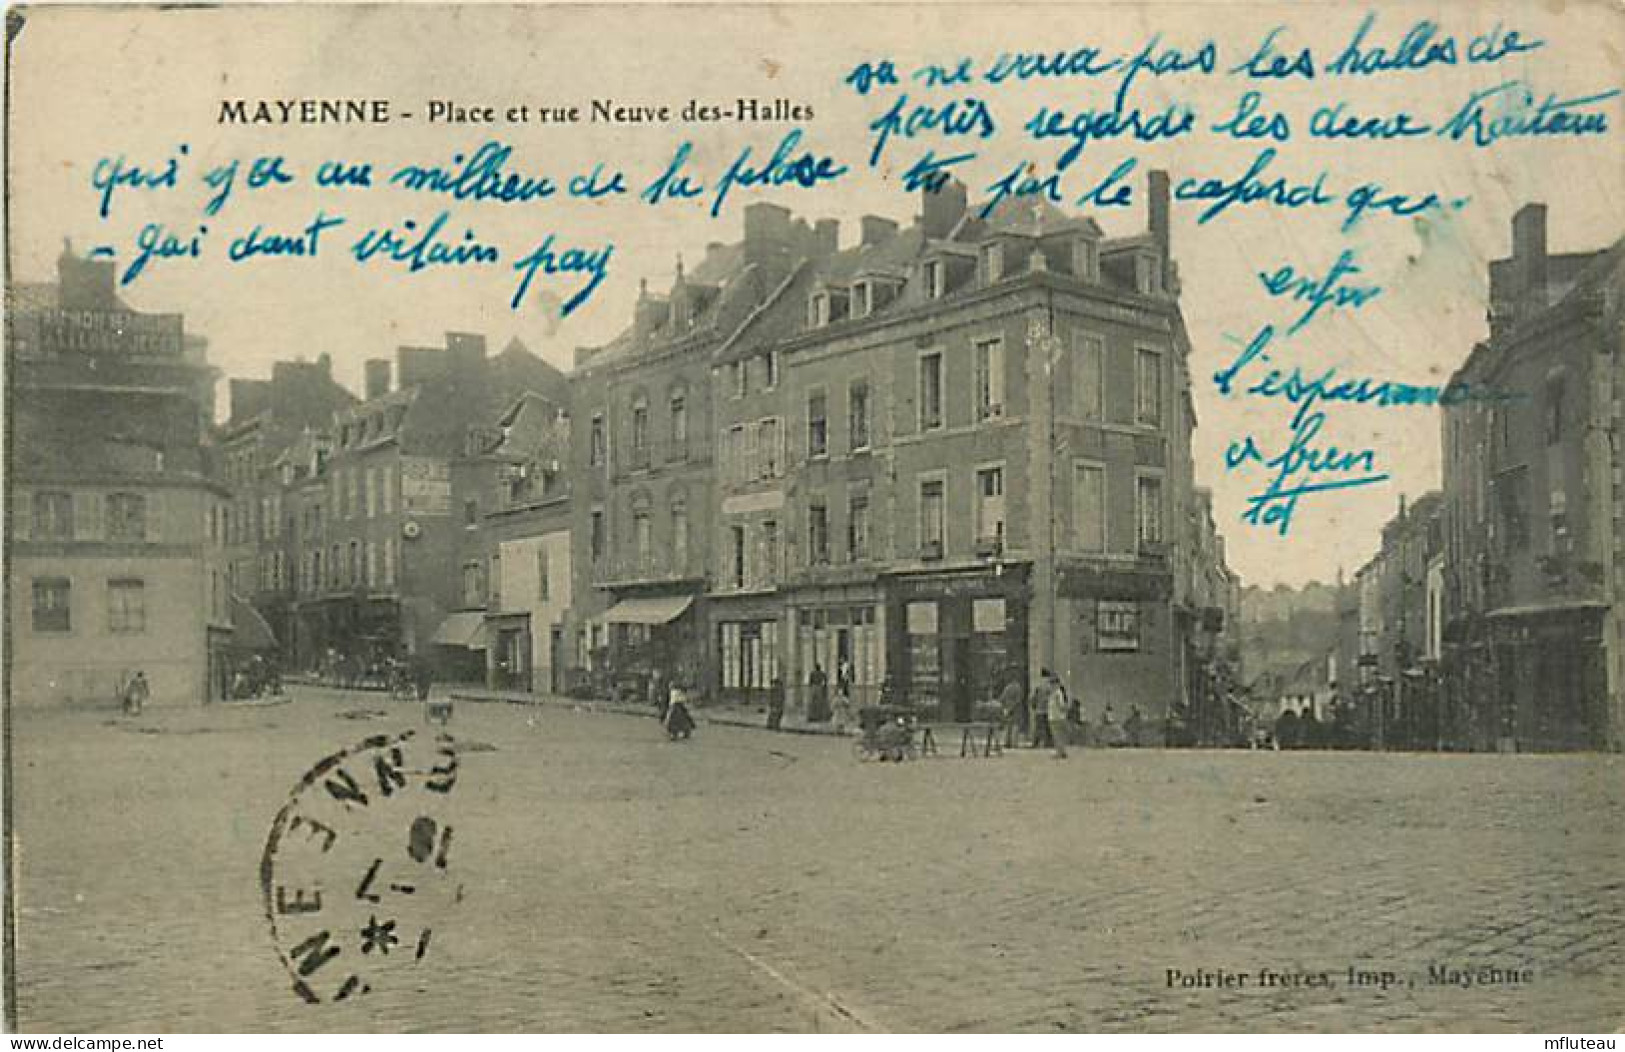 MAYENNE - Place et rue Neuve des-Halles
sa ne vaux pas les halles de
paris regarde les deux traitau
qui y a au millieu de la plase tu par le cafard que
- Jai dant vilain pay
enfin
l'esparmne
a bien
tot
MAYENNE
Poirier frères, Imp., Mayenne
www.delcampe.net
mfluteau